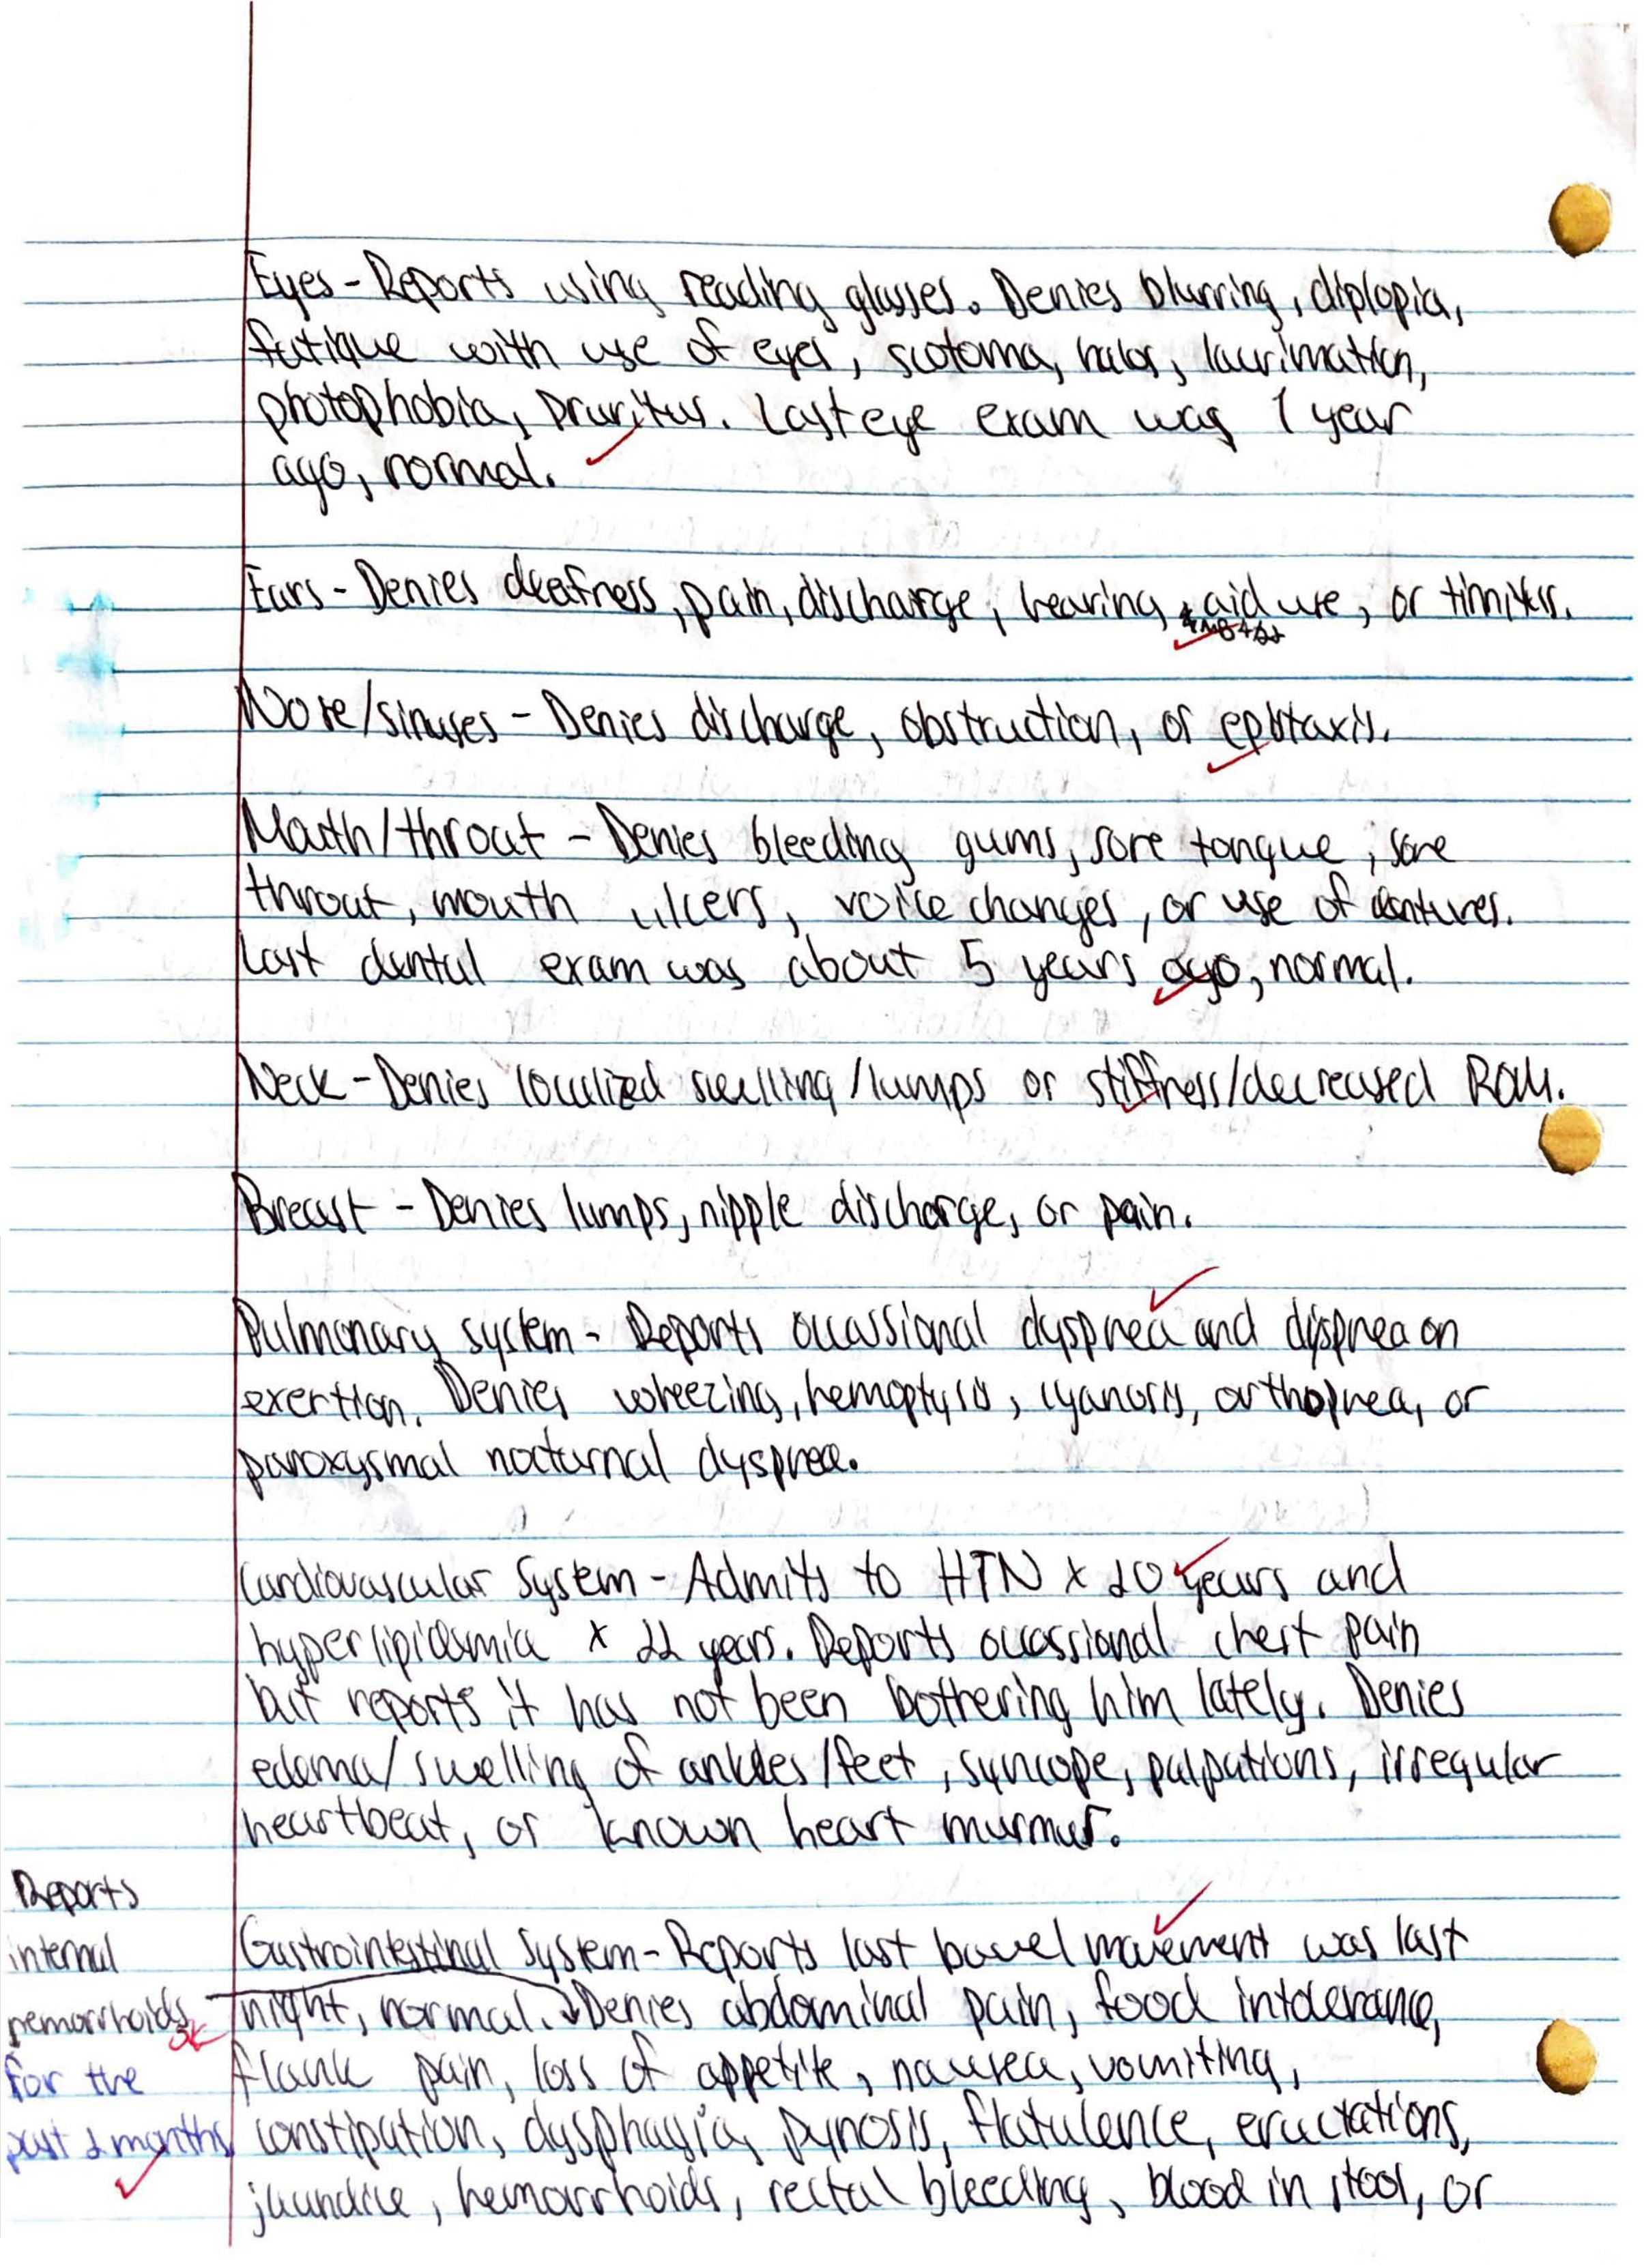 Eyes - Reports using reading glasses. Denies blurring, diplopia,
fatique with use of eyes, scotoma, halos, lacrimation,
photophobia, pruritus. Last eye exam was 1 year
ago, normal.
Ears - Denies deafness, pain, discharge, hearing aid use, or tinnitus.
Nose/sinuses - Denies discharge, obstruction, or epistaxis.
Mouth/throat - Denies bleeding gums, sore tongue, sore
throat, mouth ulcers, voice changes, or use of dentures.
Last dental exam was about 5 years ago, normal.
Neck - Denies localized swelling/lumps or stiffness/decreased ROM.
Breast - Denies lumps, nipple discharge, or pain.
Pulmonary system - Reports occassional dyspnea and dyspnea on
exertion. Denies wheezing, hemoptysis, cyanosis, orthopnea, or
paroxysmal nocturnal dyspnea.
Cardiovascular System - Admits to HTN x 20 years and
hyperlipidemia x 22 years. Reports occassional chest pain
but reports it has not been bothering him lately. Denies
edema/swelling of ankles/feet, syncope, palpations, irregular
heartbeat, or known heart murmur.
Reports
internal
hemorrhoids
for the
past 2 months
Gastrointestinal System - Reports last bowel movement was last
night, normal. Denies abdominal pain, food intolerance,
flank pain, loss of appetite, nausea, vomiting,
constipation, dysphagia, pynosis, flatulence, eructations,
jaundice, hemorrhoids, rectal bleeding, blood in stool, or